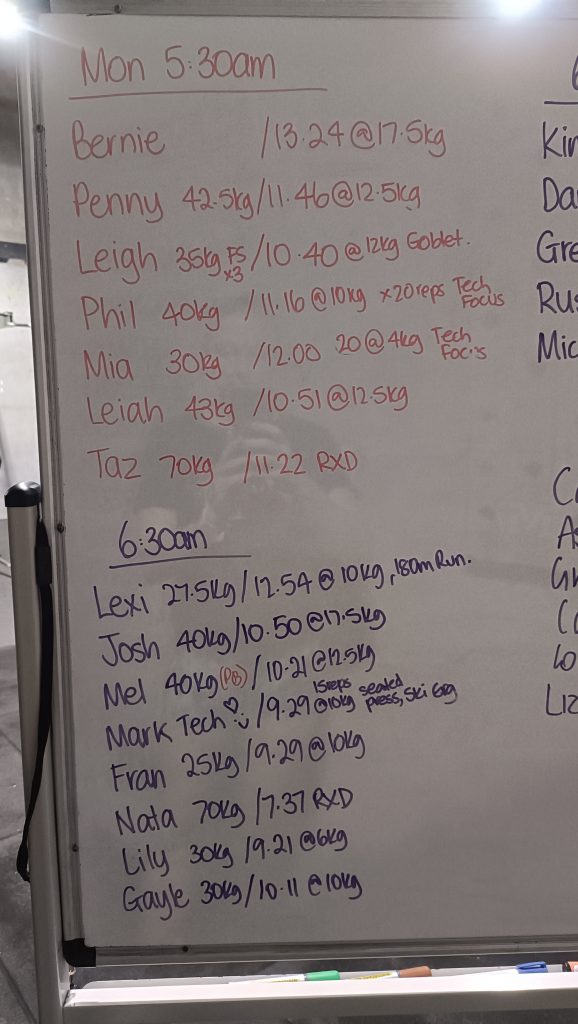 Mon 5:30am
Bernie /13.24@17.5kg
Penny 42.5kg/11.46@12.5kg
Leigh 35kg FS x3 /10.40@12kg Goblet.
Phil 40kg /11.16@10kg x20reps Tech Focus
Mia 30kg /12.00 20@4kg Tech Focus
Leiah 43kg /10.51@12.5kg
Taz 70kg /11.22 RXD
6:30am
Lexi 27.5kg/12.54@10kg, 180m Run.
Josh 40kg/10.50@17.5kg
Mel 40kg (PB)/10.21@12.5kg
Mark Tech /9.29 15reps @10kg seated press, Ski Erg
Fran 25kg/9.29@10kg
Nata 70kg/7.37 RXD
Lily 30kg/9.21@6kg
Gayle 30kg/10.11@10kg
Kin
Da
Gre
Rus
Mic
C
As
Gr
Co
Lo
Liz